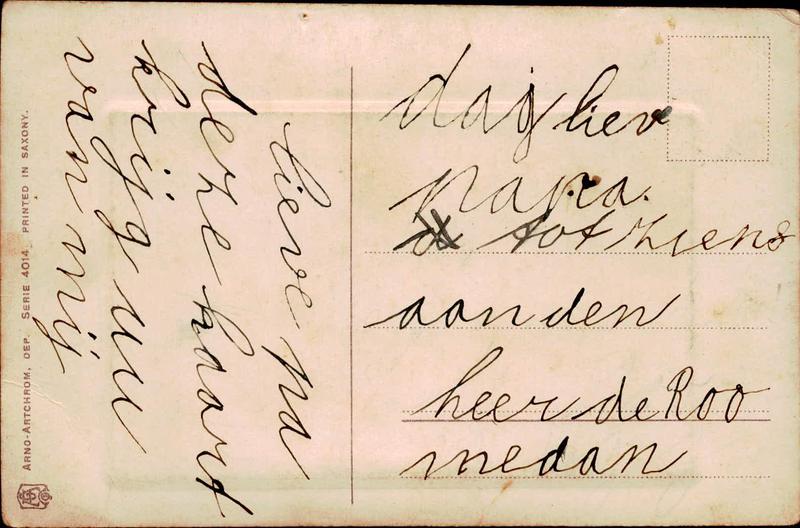 lieve pa
deze kaart
krijg uu
van mij
dag liev
papa.
tot ziens
aan den
heer de Roo
medan
ARNO-ARTCHROM, DEP. SERIE 4014. PRINTED IN SAXONY.